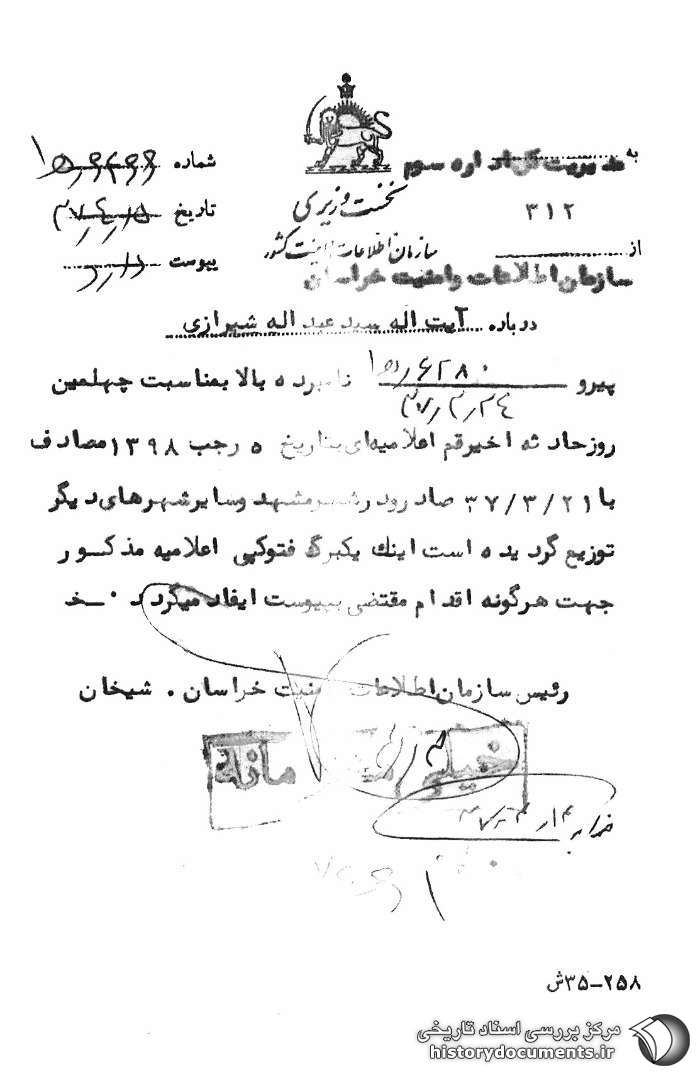 به مدیریت کل اداره سوم
۳۱۲
از
سازمان اطلاعات وامنیت خراسان
نخست وزیری
سازمان اطلاعات و امنیت کشور
شماره
تاریخ
پیوست
درباره آیت اله سید عبد اله شیرازی
پیرو نامبرده بالا بمناسبت چهلمین
روزحادثه اخیرقم اعلامیه‌ای بتاریخ ۵ رجب ۱۳۹۸ مصادف
با ۳۷/۳/۲۱ صادرودرشهرمشهد وسایرشهرهای دیگر
توزیع گردیده است اینك یکبرگ فتوکپی اعلامیه مذکور
جهت هرگونه اقدام مقتضی بپیوست ایفاد میگردد ۰ــخ
رئیس سازمان اطلاعات امنیت خراسان . شیخان
خیلی محرمانه
۲۵۸–۳۵ش
مرکز بررسی اسناد تاریخی
historydocuments.ir